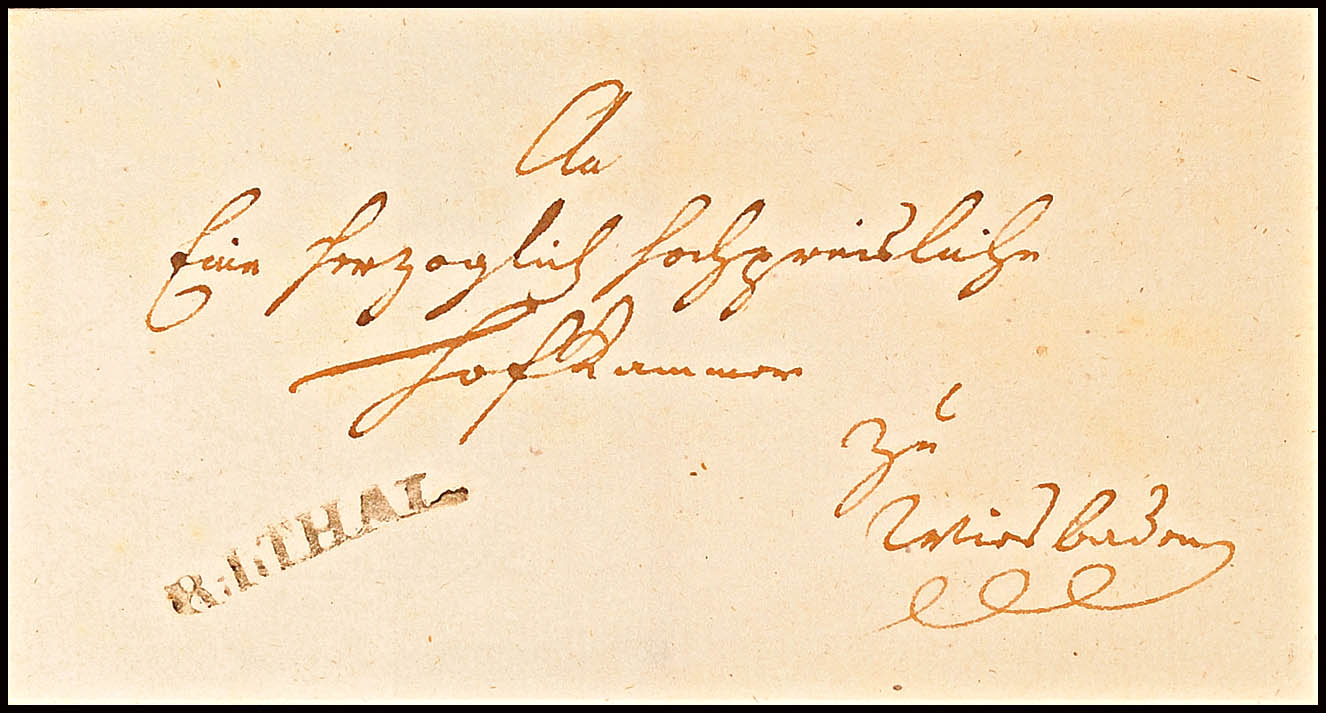 An
Eine herzoglich hochpreisliche
Hofkammer
zu
Wiesbaden
R.I.THAL.